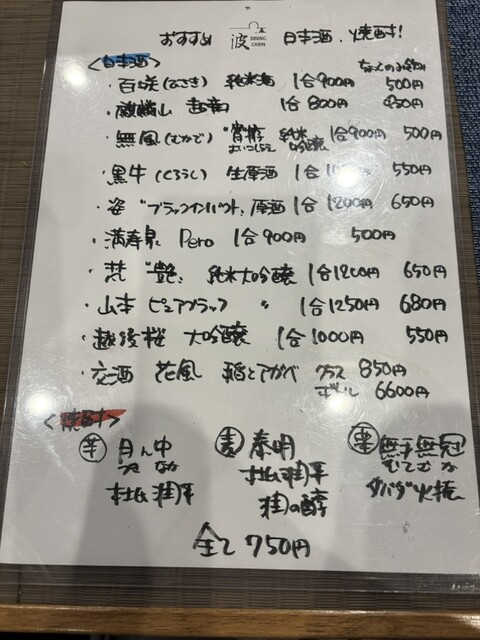 おすすめ 波 DINING CABIN 日本酒、焼酎!
<日本酒>
・百咲(ひさき) 純米酒 1合900円 500円
・麒麟山 超辛 1合800円 450円
・無風(むかで) 純米 1合900円 500円
吟醸
・黒牛(くろうし) 生原酒 1合 550円
・姿 "ブラックインパクト" 原酒 1合1200円 650円
・満寿泉 Pero 1合900円 500円
・梵 "艶" 純米大吟醸 1合1200円 650円
・山本 ピュアブラック 〃 1合1250円 680円
・越後桜 大吟醸 1合1000円 550円
・交酒 花風 稲とアガベ グラス 850円
ボトル 6600円
<焼酎>
芋 月ん中 麦 泰明 栗 無手無冠
つきんなか むてむか
杜氏潤平 杜氏潤平 ダバダ火振
全て 750円